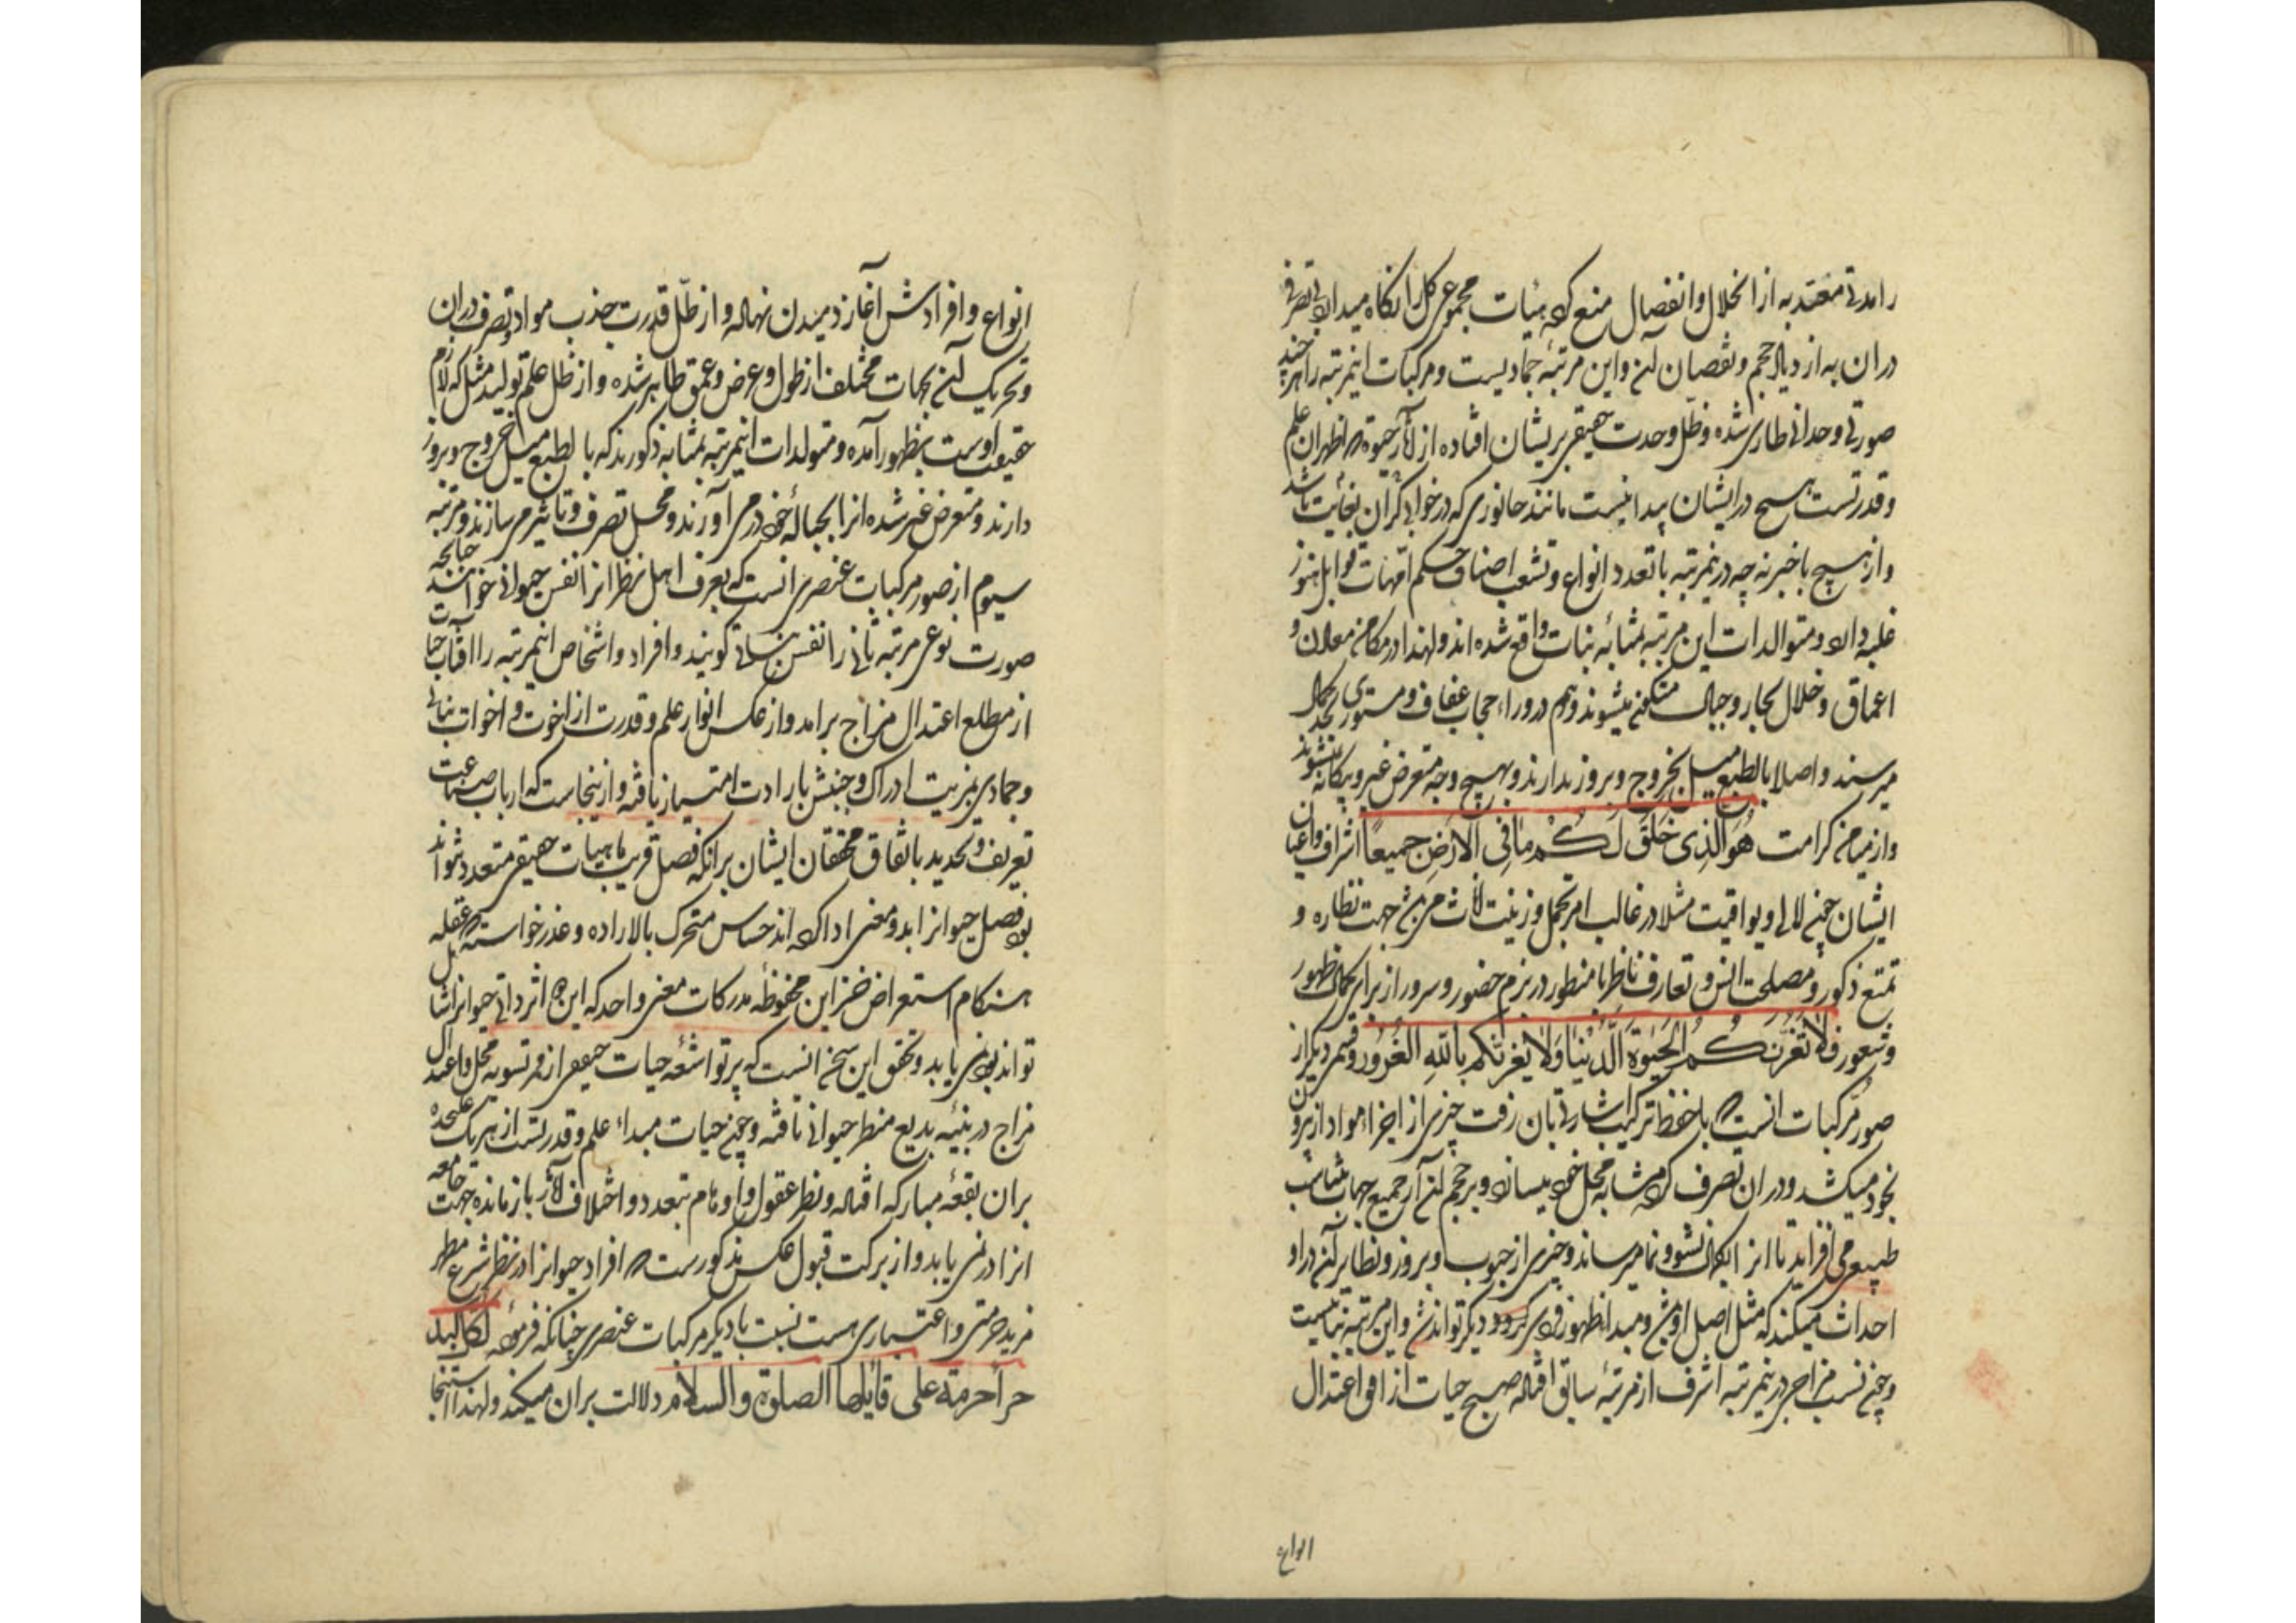 را مدتی معتد به از انحلال وانفصال منع کرده هیات مجموعی کل را نگاه میدارد بی تصرفی
دران به ازدیاد حجم ونقصان آن واین مرتبهٔ جمادیست ومرکبات اینمرتبه را هرچند
صورتی وحدانی طاری شده وظل وحدت حقیقی بریشان افتاده از آثار حیوة که اظهران علم
وقدرتست هیچ درایشان پیدا نیست مانند جانوری که در خواب گران بغایت باشد
واز هیچ باخبر نه چه درینمرتبه با تعدد انواع وتشعب اصناف حکم امهات قوابل هنوز
غلبه دارد ومتوالدات این مرتبه بمثابهٔ بنات واقع شده اند ولهذا در مکامن معادن و
اعماق وخلال بحار وجبال متکون میشوند وهم در وراء حجاب عفاف ومستوری بحد کمال
میرسند واصلا بالطبع میل بخروج وبروز ندارند وبهیچ وجه متعرض غیر وبیگانه نشوند
واز میامن کرامت هُوَ الَّذِی خَلَقَ لَكُم مَا فِی الْاَرْضِ جَمِیعًا اشراف واعیان
ایشان چون لالی ویواقیت مثلا در غالب امر تجمل وزینت اناث مربی جهت نظاره و
تمتع ذکور ومصلحت انس وتعارف ناظر با منظور در بزم حضور وسرور از برای کمال ظهور
وشعور فَلَا تَغُرَّنَّكُمُ الْحَیٰوةُ الدُّنْیَا وَلَا یَغُرَّنَّكُم بِاللّٰهِ الْغَرُور وقسمی دیگر از
صور مرکبات انست که با حفظ ترکیب اشارتی بان رفت چیزی از اجزاء مواد از برون
بخود میکشد ودران تصرف کرده مشابه محل خود میسازد وبر حجم آن از جمیع جهات متناسب
طبیعی می افزاید تا انرا بکمال نشو ونما میرساند وچیزی از حبوب وبزور ونظایر آن در او
احداث میکند که مثل اصل او میشود ومبدا ظهور فردی دیگر تواند شد واین مرتبه نباتیست
وچون نسبت مزاجی درینمرتبه اشرف از مرتبهٔ سابق افتاده صبح حیات از افق اعتدال
انواع
انواع وافرادش آغاز دمیدن نهاده واز ظلّ قدرت جذب مواد وتصرف دران
وتحریک آن بجهات مختلف از طول وعرض وعمق ظاهر شده واز ظل علم تولید مثل که لازم
حقیقت اوست بظهور آمده ومتولدات اینمرتبه بمثابه ذکورند که بالطبع میل خروج وبروز
دارند ومتعرض غیر شده انرا بحبالهٔ خود درمی آورند ومحل تصرف وتاثیر می سازند ومرتبه
سیوم از صور مرکبات عنصری انست که بعرف اهل نظر انرا نفس حیوانی خوانند چنانچه
صورت نوعی مرتبه ثانی را نفس نباتی گویند وافراد واشخاص اینمرتبه را آفتاب حیات
از مطلع اعتدال مزاج برامد واز عکس انوار علم وقدرت از اخوت واخوات نباتی
وجمادی بمزیت ادراک وجنبش بارادت امتیاز یافته وازینجاست که ارباب صناعت
تعریف وتحدید باتفاق محققان ایشان برانکه فصل قریب ماهیات حقیقی متعدد نتواند
بود فصل حیوانرا بدو معنی ادا کرده اند حساس متحرک بالاراده وعذر خواسته که عقل
هنگام استعراض خزاین محفوظه مدرکات معنی واحد که این دو اثر ذاتی حیوانرا شامل
تواند بود نمی یابد وتحقق این سخن انست که پرتو اشعهٔ حیات حقیقی از فر تسویهٔ محل واعتدال
مزاج در بنیهٔ بدیع منظر حیوانی تافته وچون حیات مبداء علم وقدرتست از هریک علیحده
بران بقعهٔ مبارکه افتاده ونظر عقول واوهام بتعدد واختلاف آثار بازمانده جهت جامعه
انرا درنمی یابد واز برکت قبول عکس مذکورست که افراد حیوانرا در نظر شرع مطهر
مزید حرمتی واعتباری هست نسبت با دیگر مرکبات عنصری چنانکه فرموده لکل کبد
حرا حرمة علی قایلها الصلوة والسلام دلالت بران میکند ولهذا استنجا